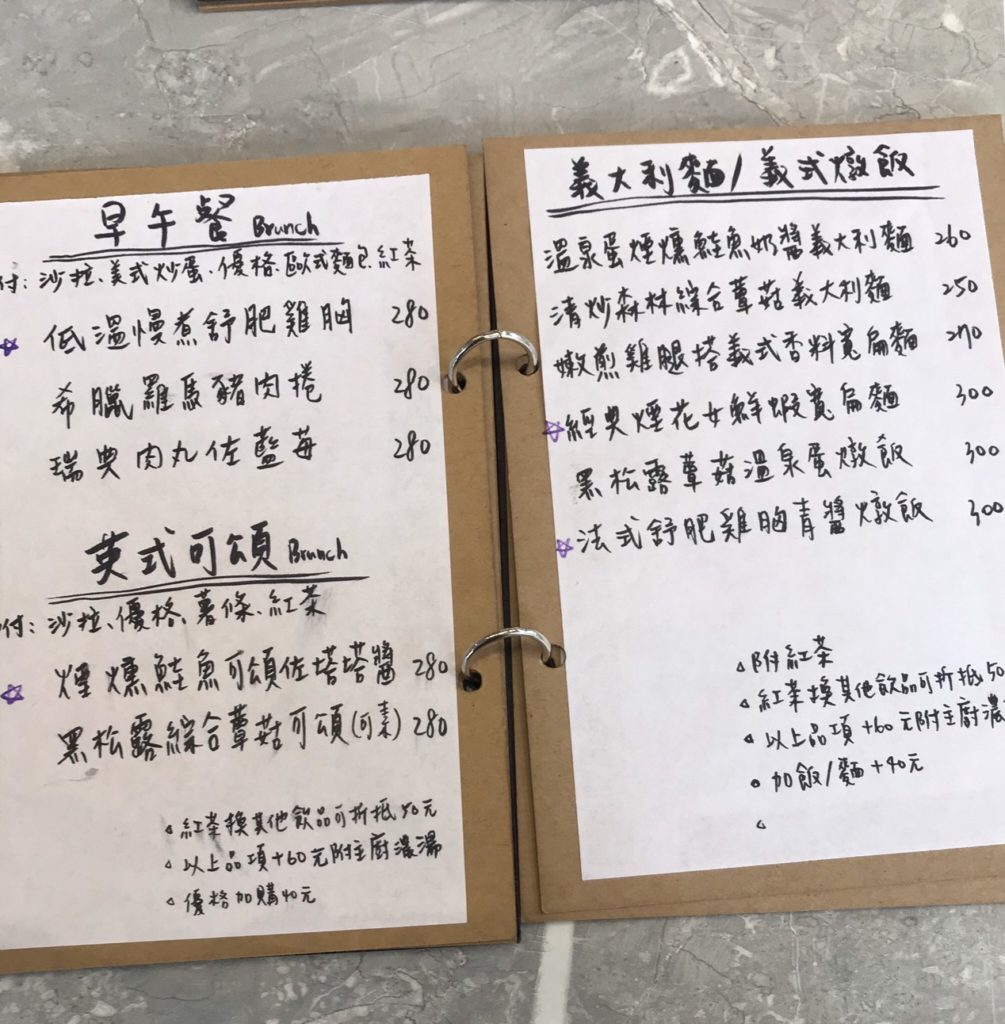 早午餐 Brunch
付: 沙拉、美式炒蛋、優格、歐式麵包、紅茶
☆ 低溫慢煮舒肥雞胸 280
希臘羅馬豬肉捲 280
瑞典肉丸佐藍莓 280
英式可頌 Brunch
付: 沙拉、優格、薯條、紅茶
☆ 煙燻鮭魚可頌佐塔塔醬 280
黑松露綜合蕈菇可頌(可素) 280
紅茶換其他飲品可折抵50元
以上品項+60元附主廚濃湯
優格加購40元
義大利麵/義式燉飯
溫泉蛋煙燻鮭魚奶醬義大利麵 260
清炒森林綜合蕈菇義大利麵 250
嫩煎雞腿搭義式香料寬扁麵 270
☆經典煙花女鮮蝦寬扁麵 300
黑松露蕈菇溫泉蛋燉飯 300
☆法式舒肥雞胸青醬燉飯 300
附紅茶
紅茶換其他飲品可折抵50
以上品項+60元附主廚濃
加飯/麵+40元